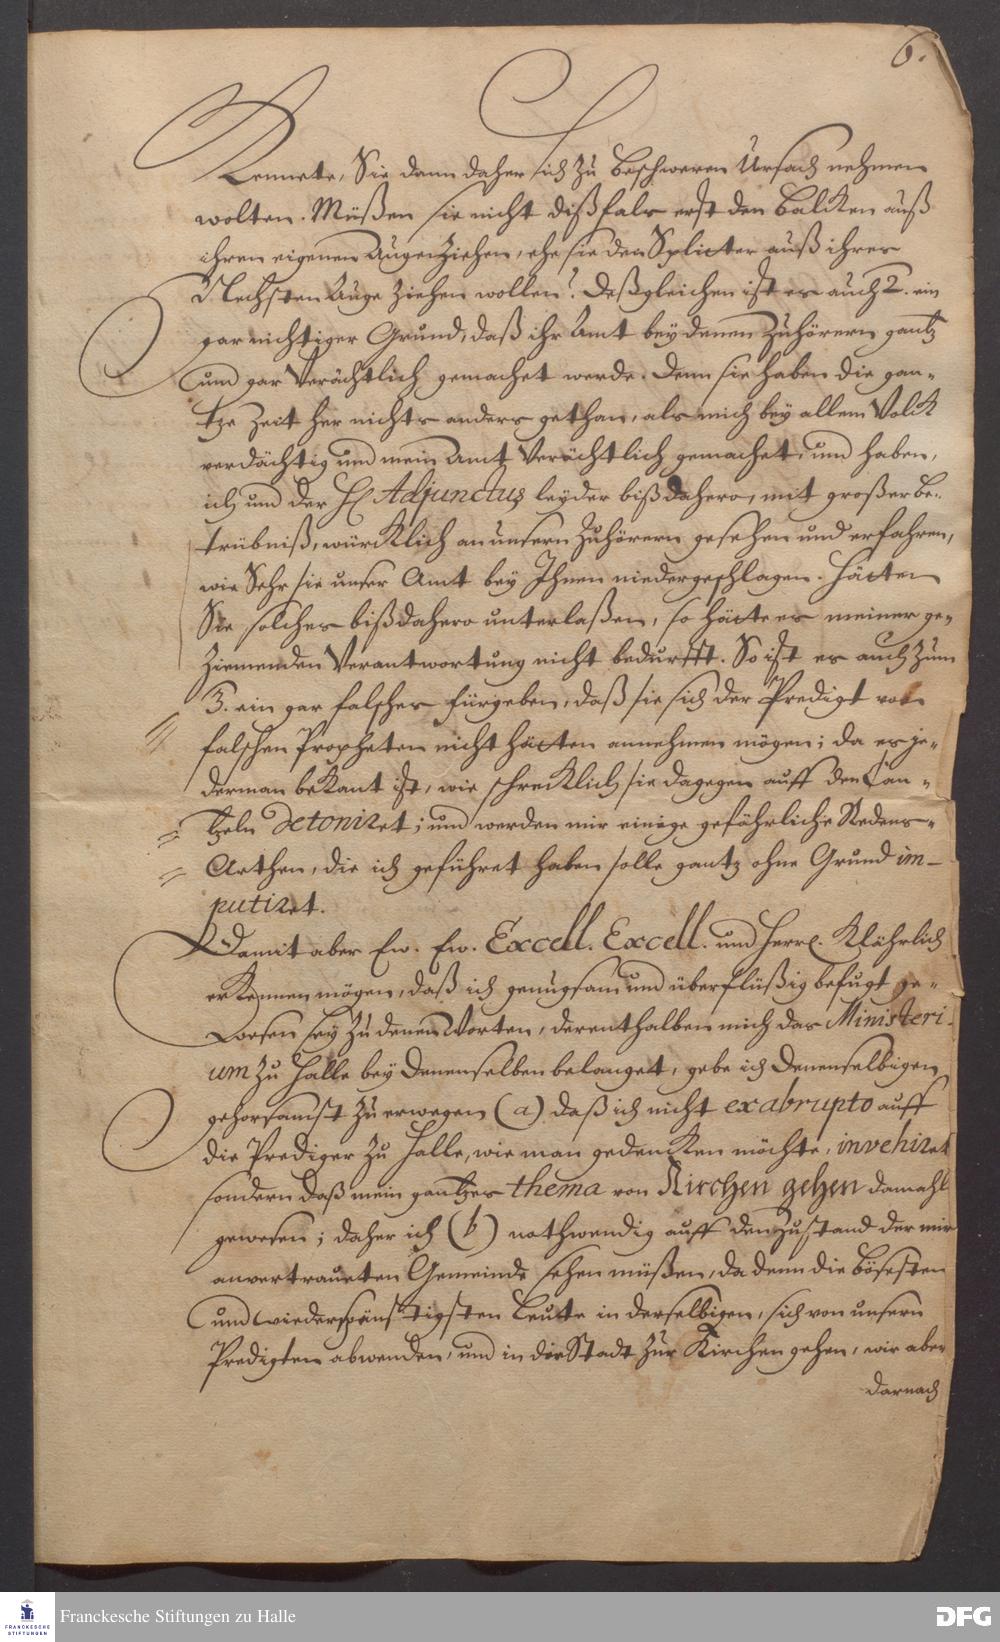 6.
Kennete, Sie dann daher sich zu beschweren Ursach nehmen
wolten. Müßen sie nicht dißfals erst den Balcken auß
ihren eigenen Augen ziehen, ehe sie den Splitter auß ihres
Nechsten Auge ziehen wollen? Deßgleichen ist es auch 2. ein
gar nichtiger Grund, daß ihr Amt bey denen Zuhörern gantz
und gar Verächtlich gemachet werde. Denn sie haben die gan-
tze Zeit her nichts anders gethan, als mich bey allem Volck
verdächtig und mein Amt Verächtlich gemachet, und haben,
ich und der H. Adjunctus leyder bißdahero, mit großer be-
trübniß, würcklich an unsern Zuhörern gesehen und erfahren,
wie Sehr sie unser Amt bey Ihnen niedergeschlagen. Hätten
Sie solches bißdahero unterlaßen, so hätte es meiner ge-
ziemenden Verantwortung nicht bedurfft. So ist es auch zum
3. ein gar falsches fürgeben, daß sie sich der Predigt von
falschen Propheten nicht hätten annehmen mögen; da es je-
derman bekant ist, wie schrecklich sie dagegen auff den Can-
tzeln detoniret; und werden mir einige gefährliche Redens-
Arthen, die ich geführet haben solle gantz ohne Grund im-
putiret.
Damit aber Ew. Ew. Excell. Excell. und Herrl. Klährlich
erkennen mögen, daß ich genugsam und überflüßig befugt ge-
wesen sey zu denen Worten, derenthalben mich das Ministeri-
um zu Halle bey Denenselben belanget, gebe ich Denenselbigen
gehorsamst zu erwegen (a) daß ich nicht ex abrupto auff
die Prediger zu Halle, wie man gedencken möchte, invehiret
sondern daß mein gantzes thema von Kirchen gehen damahl
gewesen; daher ich (b) nothwendig auff den Zustand der mir
anvertraueten Gemeinde sehen müßen, da denn die bösesten
und wiederspänstigsten Leutte in derselbigen, sich von unsern
Predigten abwenden, und in die Stadt zur Kirchen gehen, wir aber
darnach
FRANCKESCHE
STIFTUNGEN
Franckesche Stiftungen zu Halle
DFG